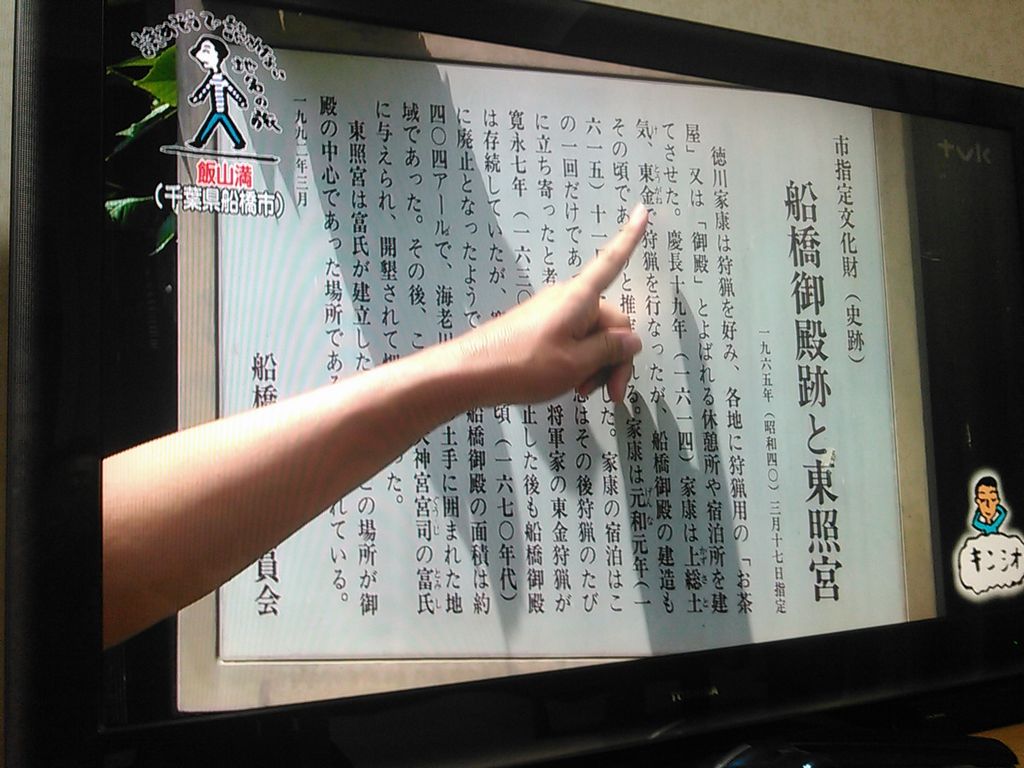 読めそうで読めない
地名の旅
飯山満
(千葉県船橋市)
tvk
キンシオ
市指定文化財(史跡)
船橋御殿跡と東照宮
一九六五年(昭和四〇)三月十七日指定
徳川家康は狩猟を好み、各地に狩猟用の「お茶
屋」又は「御殿」とよばれる休憩所や宿泊所を建
てさせた。慶長十九年(一六一四)家康は上総土
気、東金で狩猟を行なったが、船橋御殿の建造も
その頃であ と推 る。家康は元和元年(一
六一五)十一 した。家康の宿泊はこ
の一回だけであ 忠はその後狩猟のたび
に立ち寄ったと考 将軍家の東金狩猟が
寛永七年(一六三〇 止した後も船橋御殿
は存続していたが、 頃(一六七〇年代)
に廃止となったようで 船橋御殿の面積は約
四〇四アールで、海老川 土手に囲まれた地
域であった。その後、こ 大神宮宮司の富氏
に与えられ、開墾されて畑 った。
東照宮は富氏が建立した この場所が御
殿の中心であった場所である れている。
一九九二年三月
船橋 員会